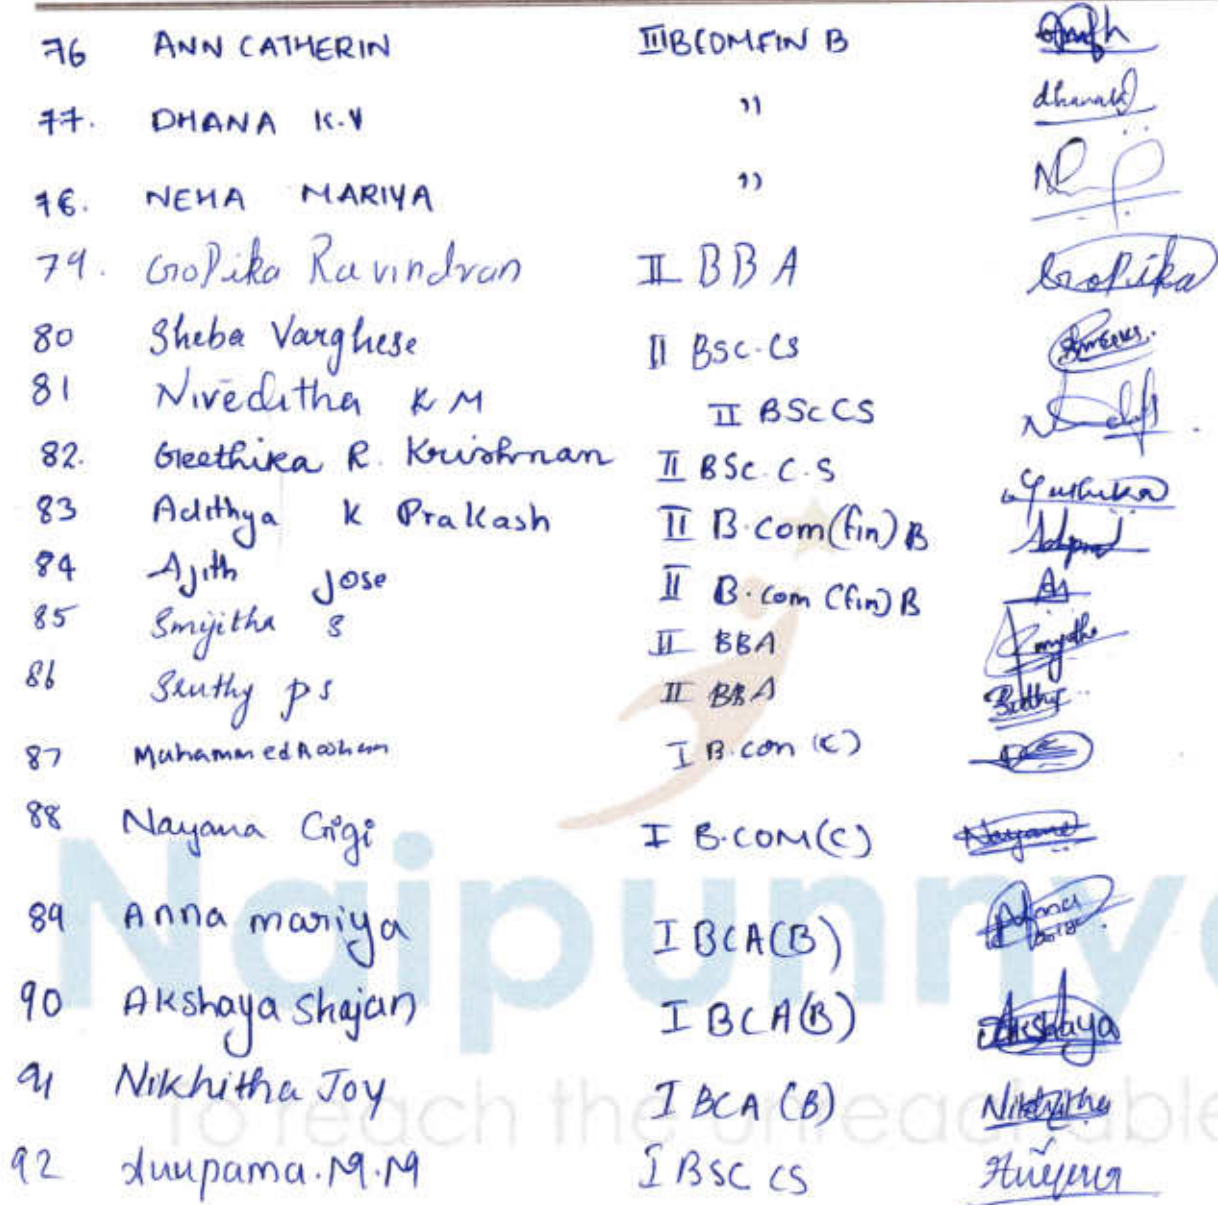 76 ANN CATHERIN III BCOM FIN B
77. DHANA K.V " dhanakv
78. NEHA MARIYA "
79. GoPika Ravindran II BBA GoPika
80 Sheba Varghese II BSC-CS
81 Niveditha K M II BSc CS
82. Geethika R. Krishnan II BSc. C.S Geethika
83 Adithya K Prakash II B.com(fin) B
84 Ajith Jose II B.com (fin) B
85 Smijitha S II BBA Smijitha
86 Sruthy P S II BBA Sruthy
87 Muhammed I B.com (C)
88 Nayana Gigi I B.COM(C) Nayana
89 Anna mariya I BCA(B) Anna
90 Akshaya Shajan I BCA(B) Akshaya
91 Nikhitha Joy I BCA (B) Nikhitha
92 Anupama.M.M I BSC CS
Naipunnya
To reach the unreachable